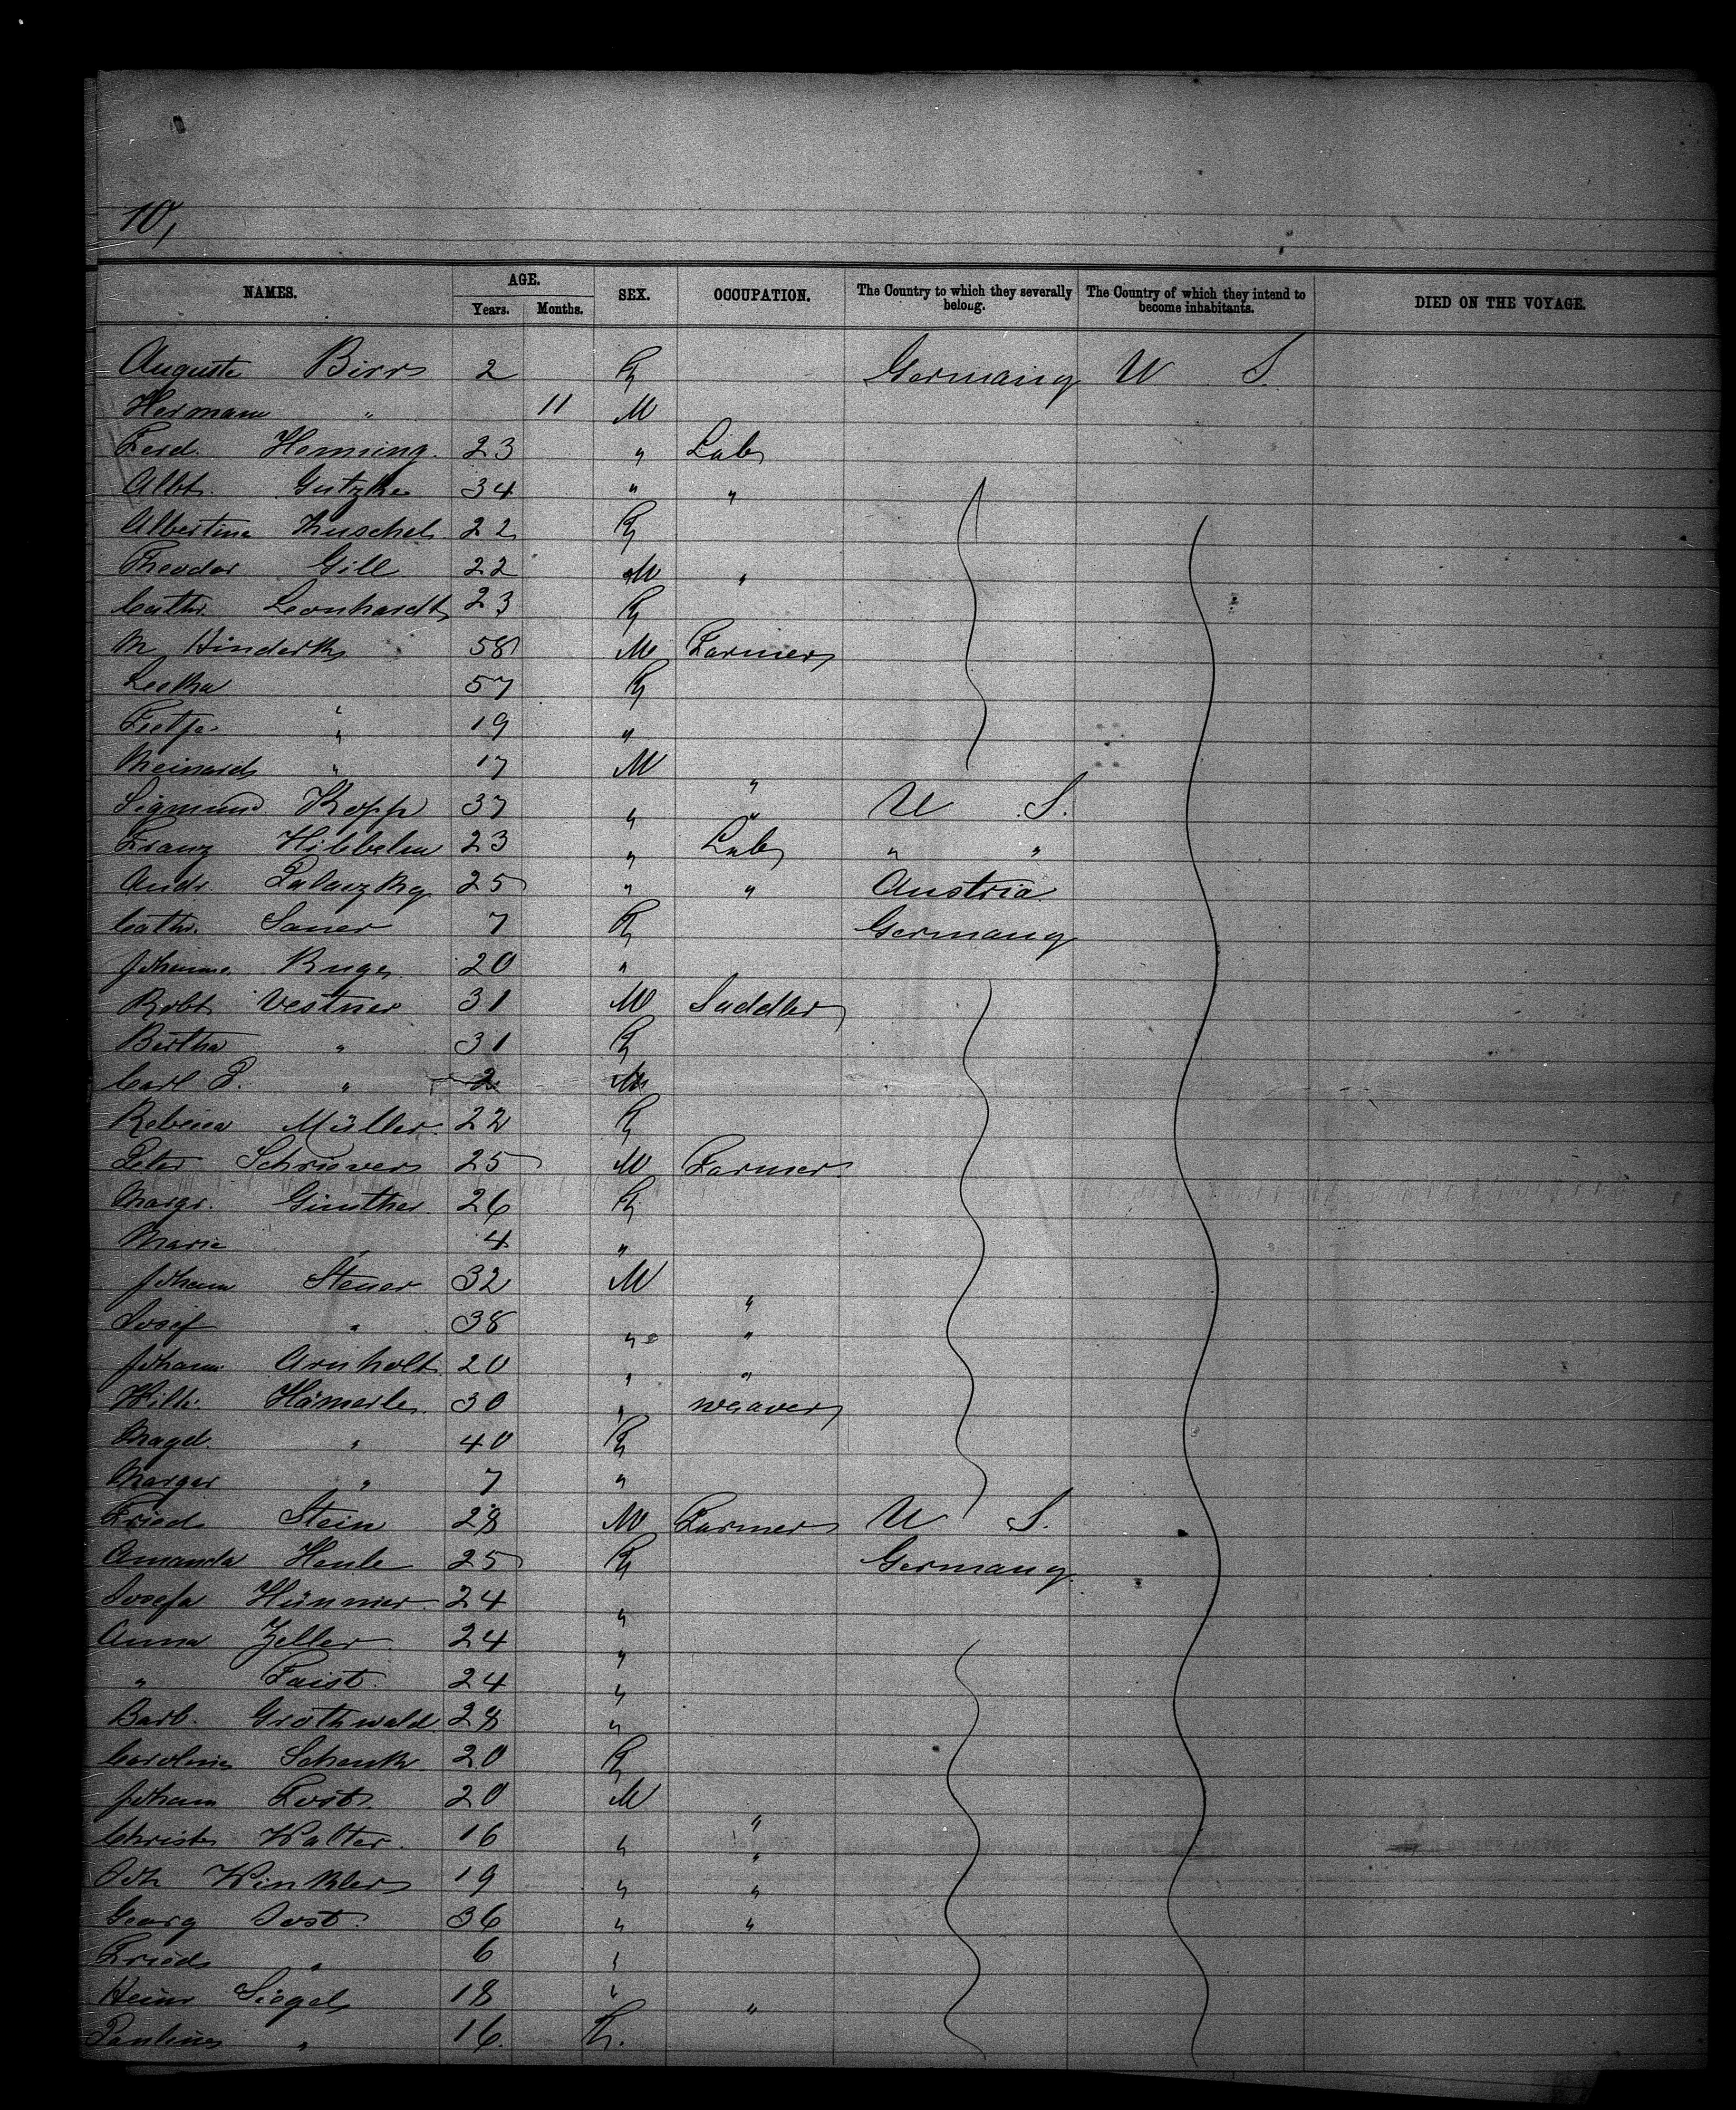 10,
NAMES. AGE. SEX. OCCUPATION. The Country to which they severally belong. The Country of which they intend to become inhabitants. DIED ON THE VOYAGE.
Years. Months.
Auguste Birr 2 F Germany U S.
Hermann " 11 M
Ferd. Henning 23 " Lab
Albt. Gutzke 34 " "
Albertine 22 F
Theodor Gill 22 M "
Cathr. Leonhardt 23 F
M Hinderks 58 M Farmer
57 F
" 19 "
Meinard " 17 M "
Sigmund Kopp 37 " " U S.
Franz 23 " Lab " "
Andr. 25 " " Austria
Cathr. Sauer 7 F Germany
Johanna Ruge 20 "
Robt Vestner 31 M Saddler
Bertha " 31 F
Carl P. " 2 M
Rebecca Müller 22 F
Peter Schriever 25 M Farmer
Margr. Günther 26 F
Marie " 4 "
Johann Steuer 32 M "
Josef " 38 " "
Johann Arnholt 20 " "
Wilh. Hämerle 30 " weaver
Magd. " 40 F
Margar " 7 "
Fried. Stein 28 M Farmer U S.
Amanda Henle 25 F Germany
Josefa 24 "
Anna Zeller 24 "
" Faist 24 "
Barb. Grothwald 28 "
Caroline Schenk 20 F
Johann 20 M "
Christ Walter 16 " "
Joh Winkler 19 " "
Georg Jost 36 " "
Fried " 6 "
Heinr Siegel 18 " "
Pauline " 16 F.